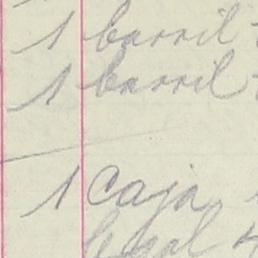 1 barril
1 barril
1 caja
legal